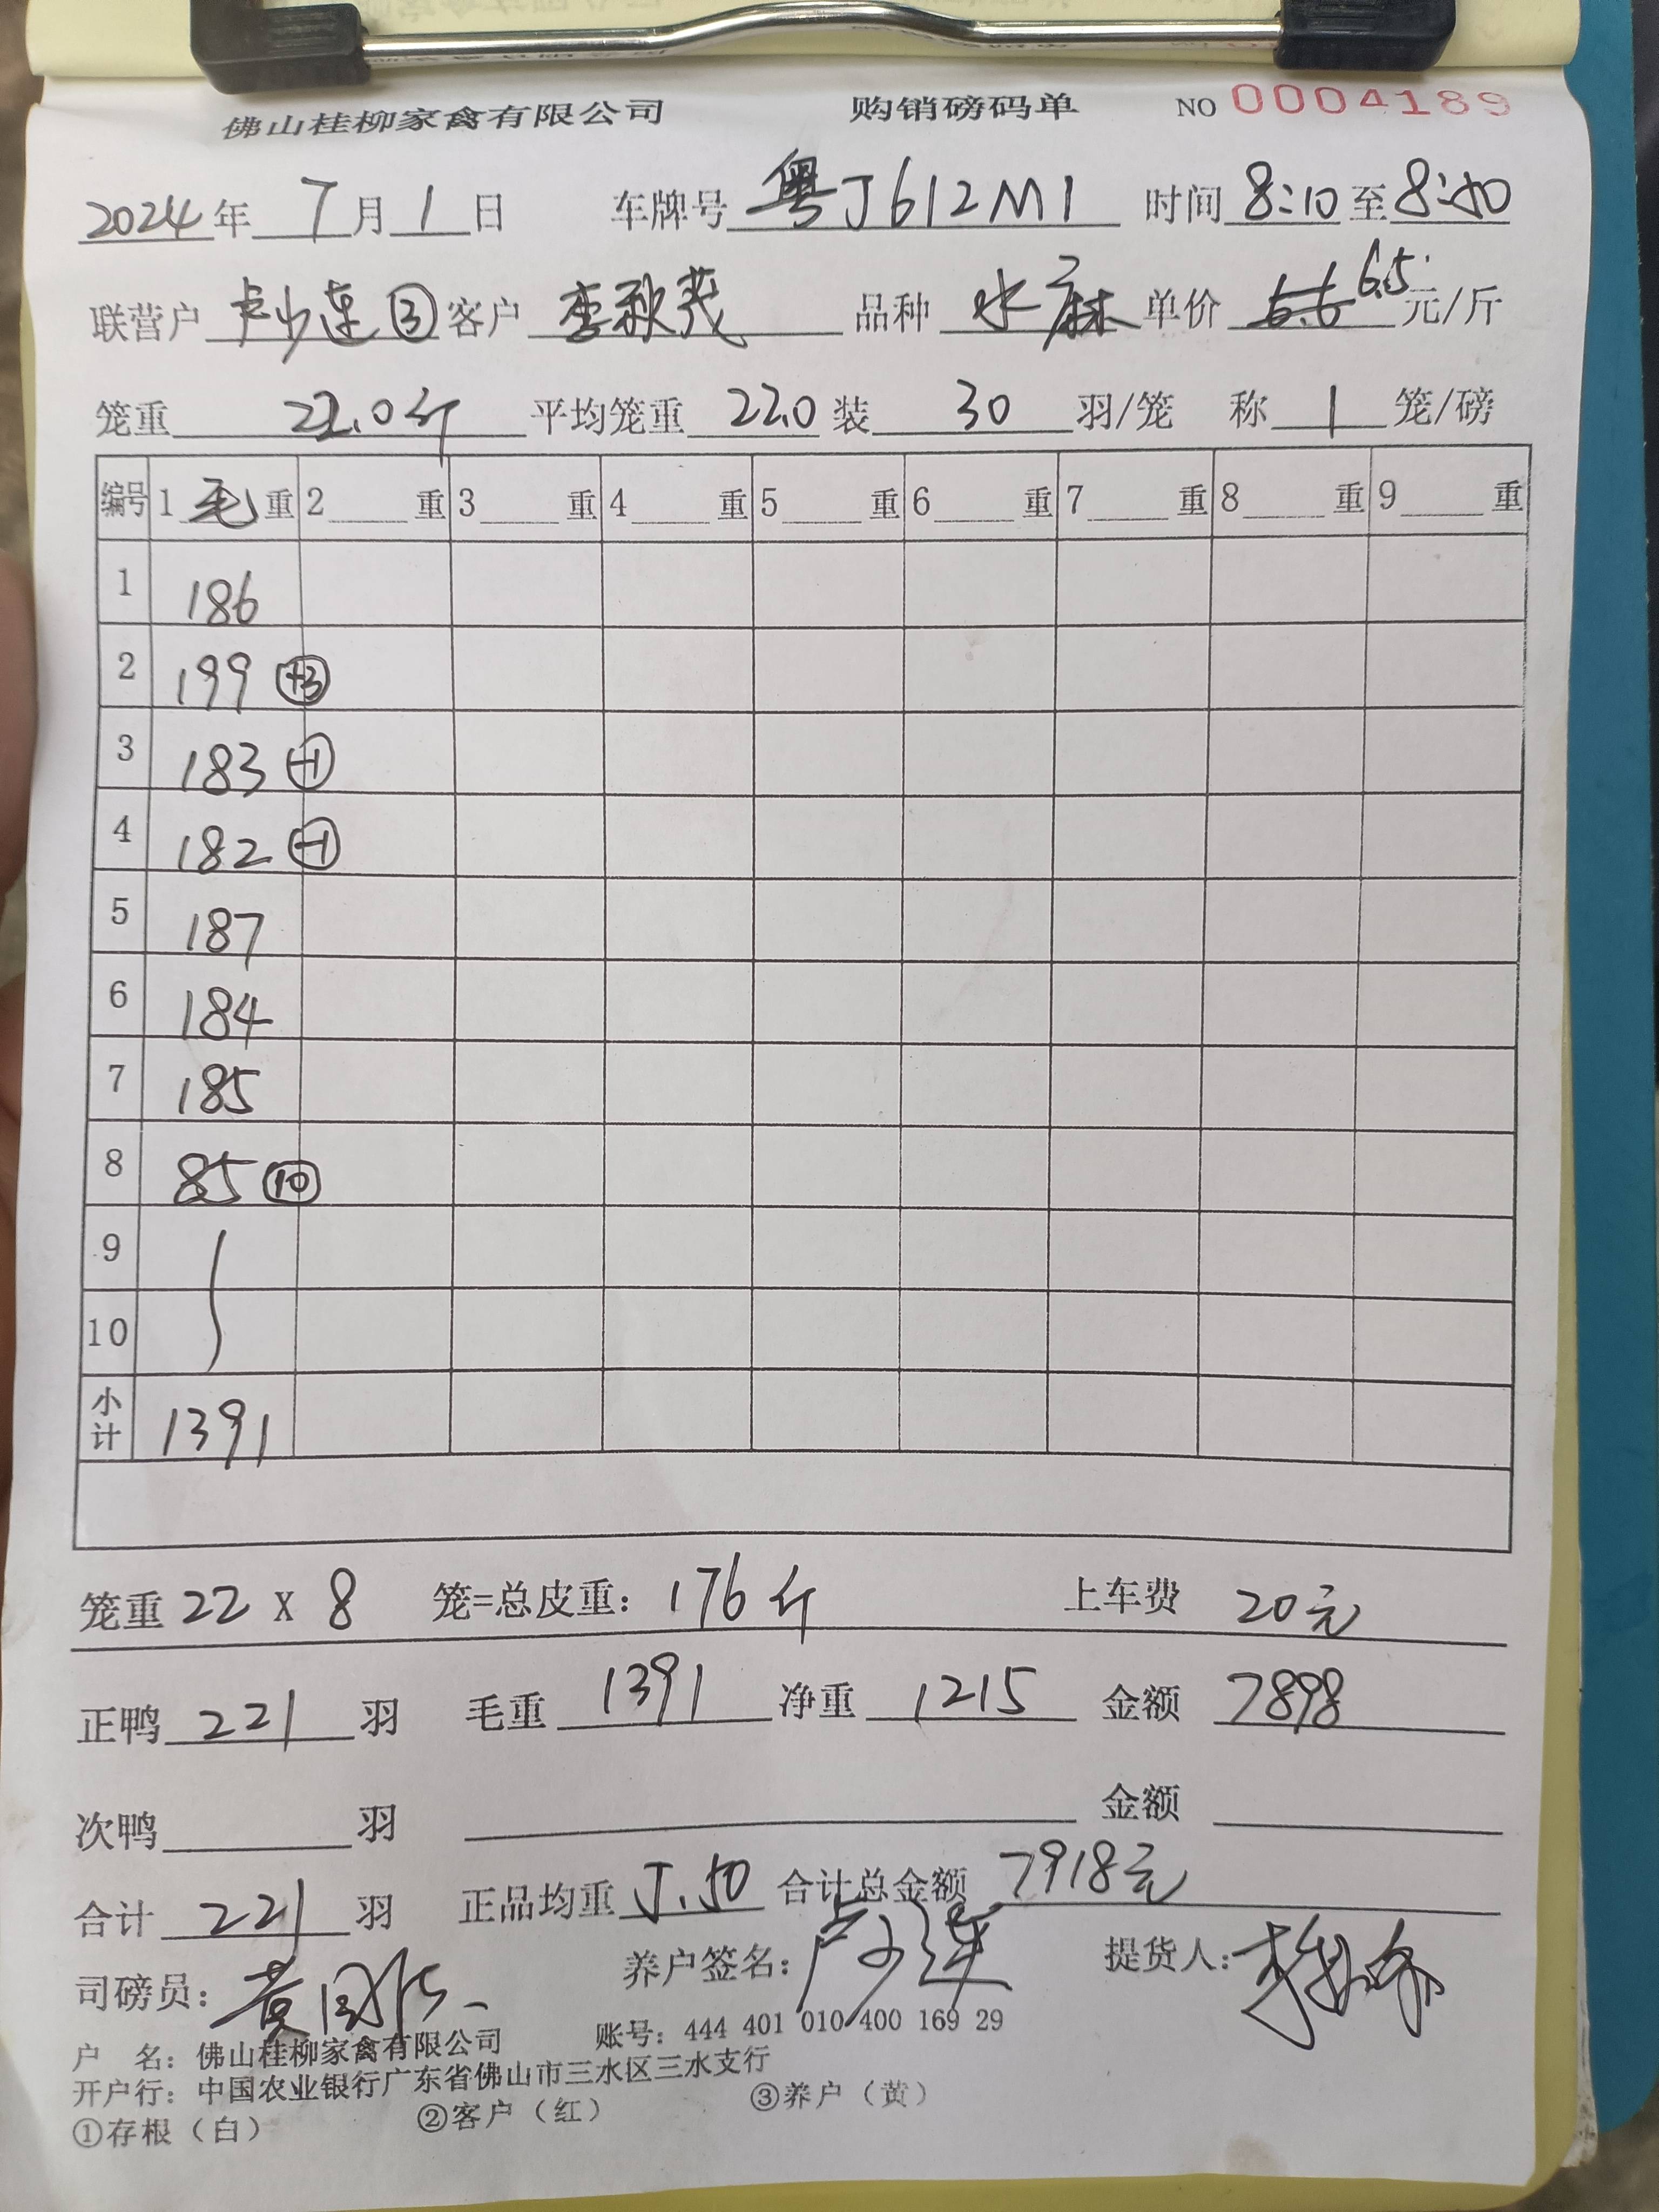 佛山桂柳家禽有限公司 购销磅码单 NO 0004189
2024年 7月 1日 车牌号 粤J612M1 时间 8:10 至 8:40
联营户 卢少连③ 客户 李秋茂 品种 水麻 单价 6.6 6.5 元/斤
笼重 22.0斤 平均笼重 22.0 装 30 羽/笼 称 1 笼/磅
编号 1 毛 重 2 重 3 重 4 重 5 重 6 重 7 重 8 重 9 重
1 186
2 199 +3
3 183 -1
4 182 -1
5 187
6 184
7 185
8 85 ⑩
9
10
小计 1391
笼重 22 X 8 笼=总皮重: 176斤 上车费 20元
正鸭 221 羽 毛重 1391 净重 1215 金额 7898
次鸭 羽 金额
合计 221 羽 正品均重 5.50 合计总金额 7918元
司磅员: 黄 养户签名: 卢少连 提货人: 李
户 名: 佛山桂柳家禽有限公司 账号: 444 401 010 400 169 29
开户行: 中国农业银行广东省佛山市三水区三水支行
①存根（白） ②客户（红） ③养户（黄）